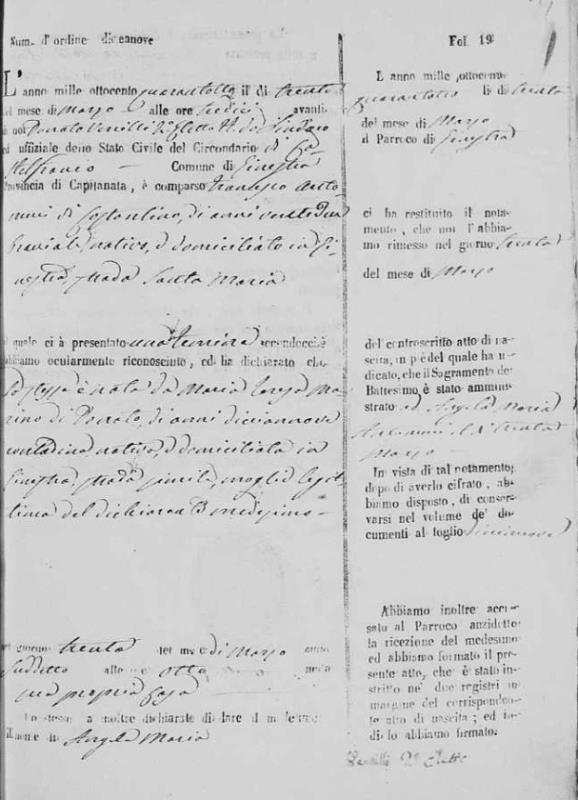 Num. d'ordine diecanove
L'anno mille ottocento quarantotto il dì trenta
del mese di Marzo alle ore tredici avanti
di noi Donato Verilli 2° Eletto ff. del Sindaco
ed uffiziale dello Stato Civile del Circondario di Ca-
stelfranco Comune di Ginestra
Provincia di Capitanata, è comparso Anto-
di Costantino, di anni
nativo, e domiciliato in Gi-
nestra, strada Santa Maria
quale ci à presentato una femina secondocchè
abbiamo ocularmente riconosciuto, ed ha dichiarato che
la stessa è nata da Maria Teresa Ma-
rino di Donato, di anni diciannove
contadina nativa, e domiciliata in
Ginestra, strada simile, moglie legit-
tima del dichiarante
nel giorno trenta del mese di Marzo anno
suddetto alle ore otto nella
sua propria casa
Lo stesso a inoltre dichiarato di dare il
nome di Angela Maria
Fol 19
L anno mille ottocento
quarantotto lì di trenta
del mese di Marzo
il Parroco di Ginestra
ci ha restituito il nota-
mento, che noi l'abbia-
mo rimesso nel giorno trenta
del mese di Marzo
del controscritto atto di na-
scita, in piè del quale ha in-
dicato, che il Sagramento del
Battesimo è stato ammini-
strato ad Angela Maria
Antonini il dì trenta
Marzo
In vista di tal notamento,
dopo di averlo cifrato, ab-
biamo disposto, di conser-
varsi nel volume de' do-
cumenti al foglio diecinove
Abbiamo inoltre accu-
sato al Parroco anzidetto
la ricezione del medesimo
ed abbiamo formato il pre-
sente atto, che è stato in-
scritto ne' due registri in
margine del corrisponden-
te atto di nascita; ed in-
di lo abbiamo firmato.
Verilli 2° Eletto